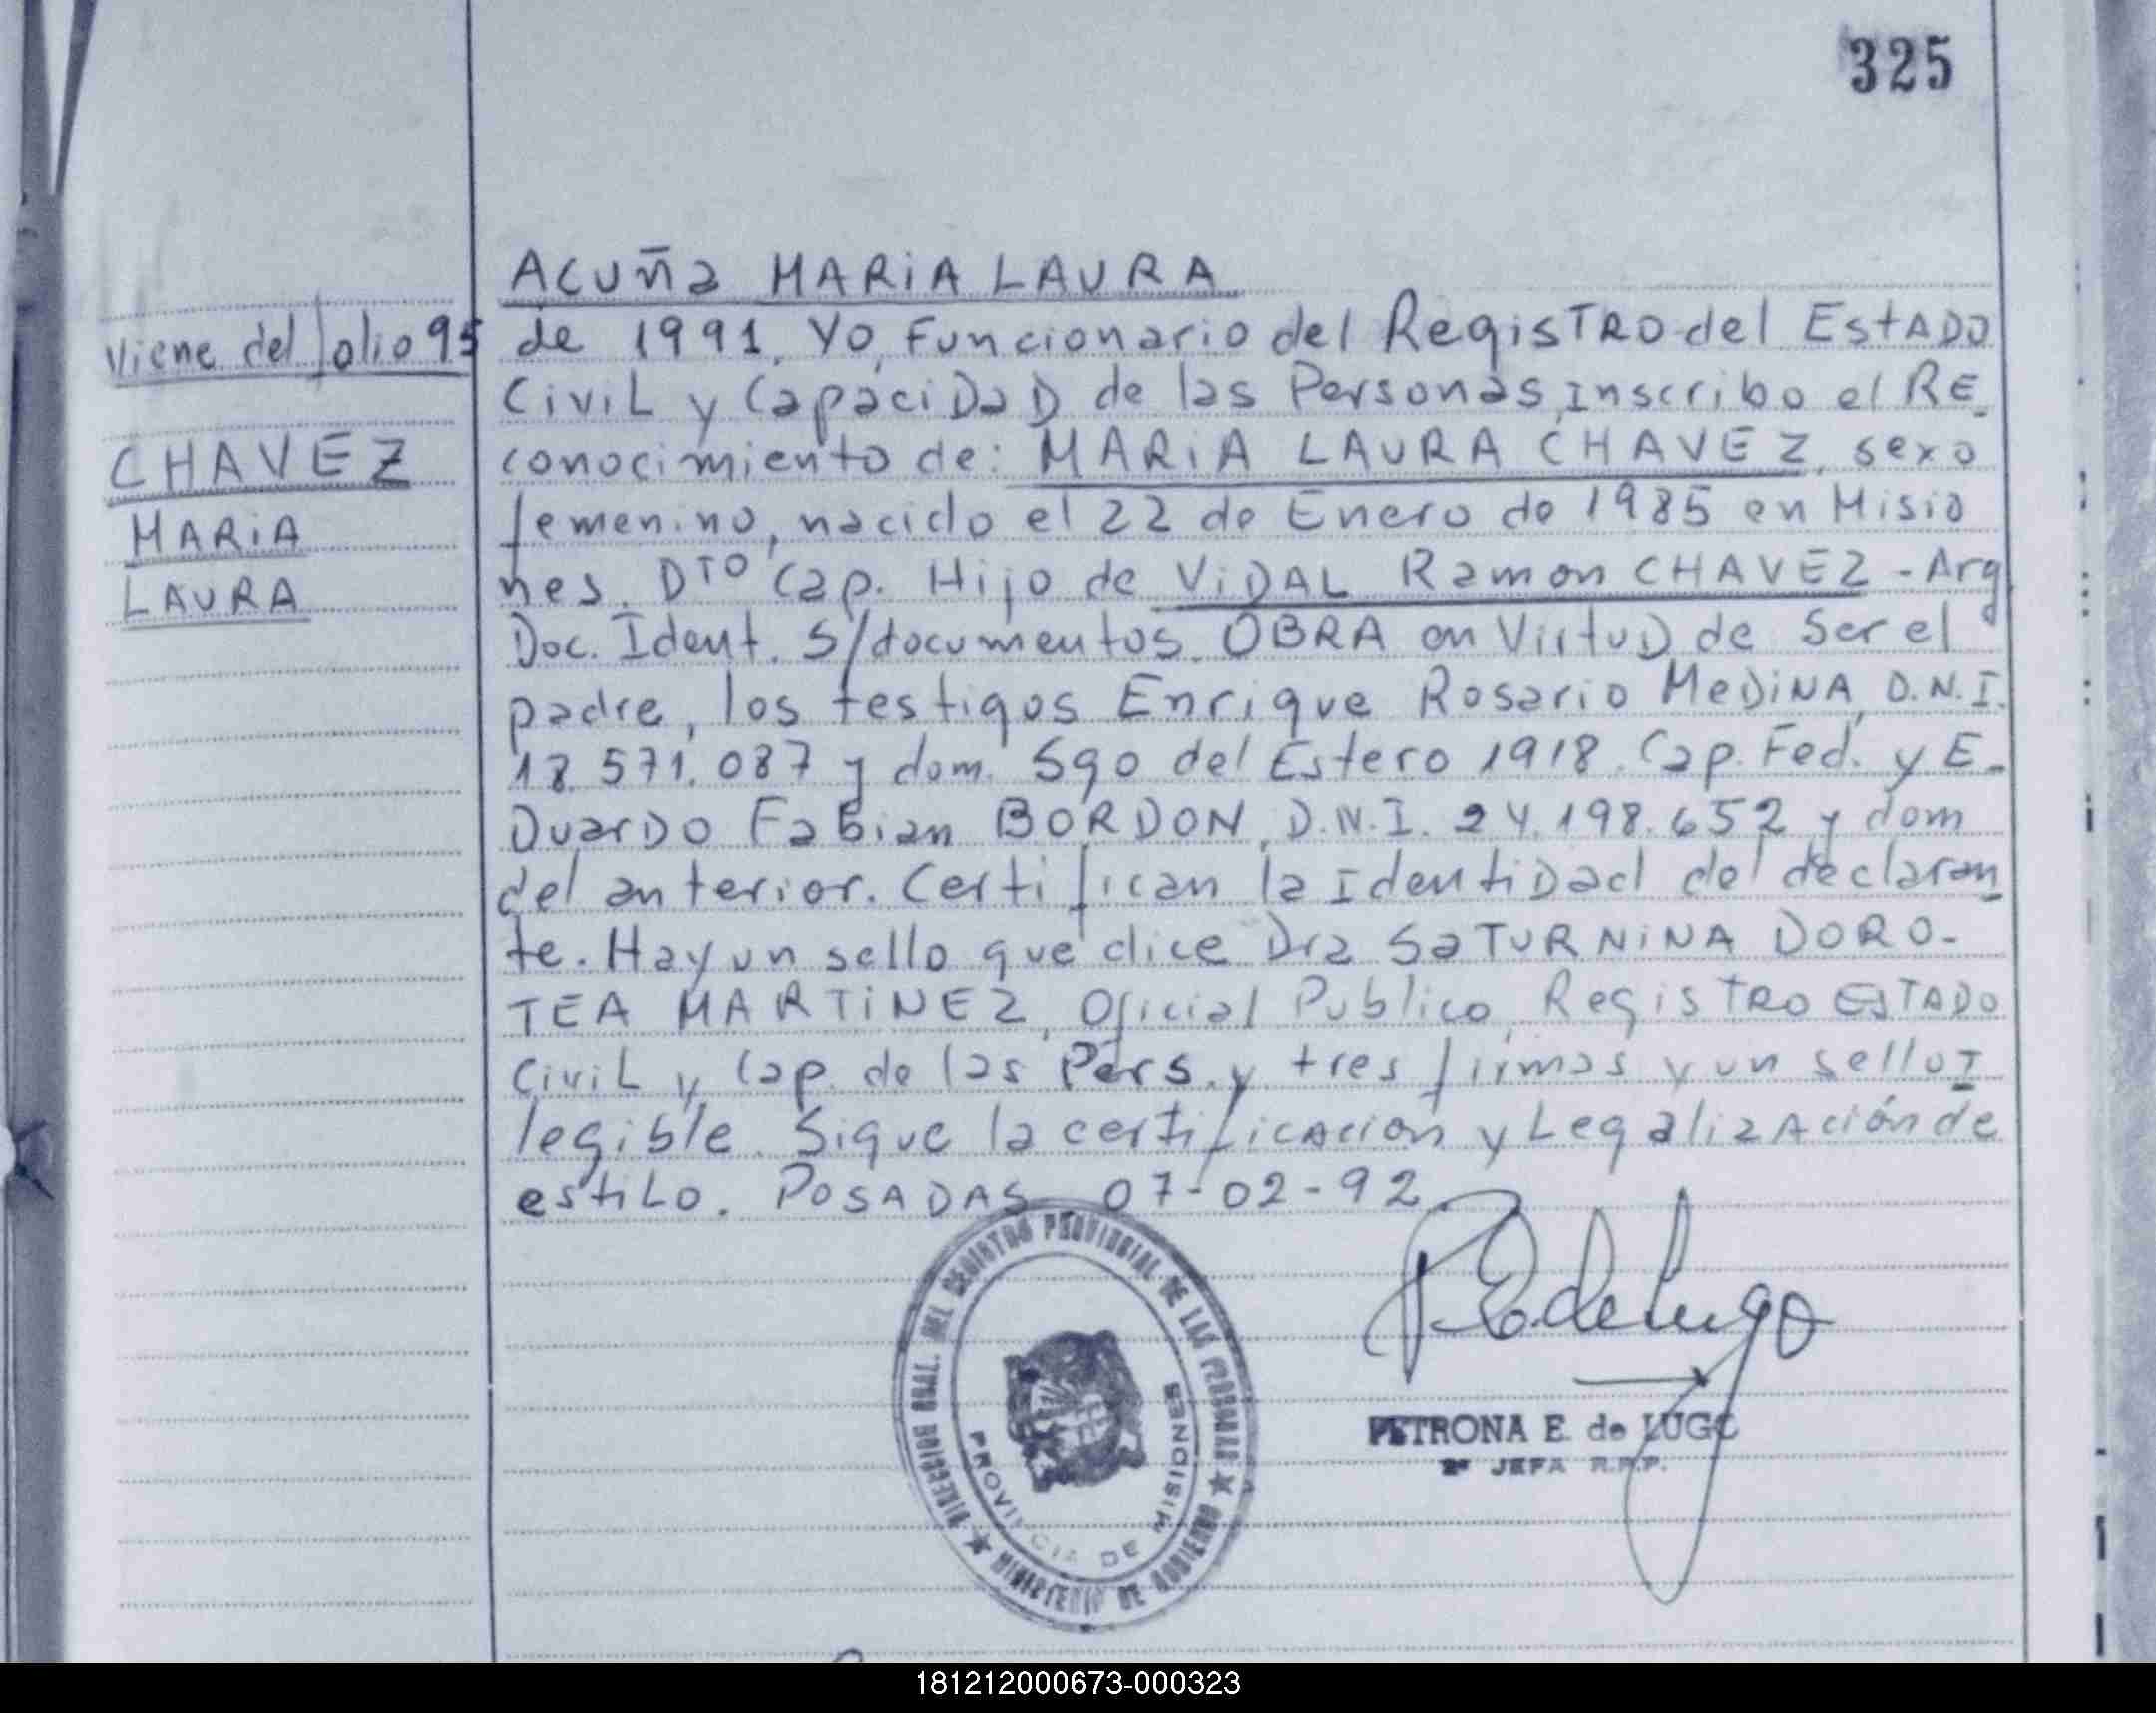 325
ACUÑA MARIA LAURA
viene del folio 95
CHAVEZ
MARIA
LAURA
de 1991, Yo, Funcionario del REgiSTRO del EstADO
CiviL y CapaciDaD de las Personas, Inscribo el RE_
conocimiento de: MARIA LAURA CHAVEZ, sexo
femenino, nacido el 22 de Enero de 1985 en Misio
nes. DTO Cap. Hijo de ViDAL Ramon CHAVEZ - Arg
Doc. Ident. S/documentos. OBRA en VirtuD de Ser el
padre, los testigos Enrique Rosario MeDiNA, D.N.I.
18.571.087 y dom. Sgo del Estero 1918. Cap. Fed. y E_
DuarDO Fabian BORDON, D.N.I. 24.198.652 y dom
del anterior. Certifican la IdentiDad del declaran_
te. Hay un sello que dice Dra SaTURNiNA DORO-
TEA MARTiNEZ, Oficial Publico, RegisTRO ESTADO
CiviL y Cap. de las Pers. y tres firmas y un sello I
legible. Sigue la certificacion y Legalización de
estiLo. POSADAS 07-02-92.
DIRECCION GRAL. DEL REGISTRO PROVINCIAL DE LAS PERSONAS ★ MINISTERIO DE GOBIERNO ★
PROVINCIA DE MISIONES
P.E. de Lugo
PETRONA E. de LUGO
2ª JEFA R.P.P.
181212000673-000323